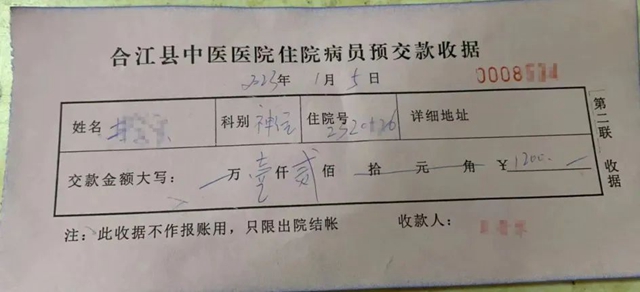 合江县中医医院住院病员预交款收据
2023年 1月 5日
0008
姓名 科别 神经 住院号 详细地址
交款金额大写： 一 万 壹 仟 贰 佰 拾 元 角 ￥1200.—
注：此收据不作报账用，只限出院结帐 收款人：
第二联 收据